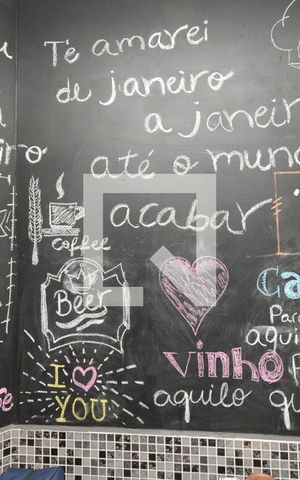 Te amarei
de janeiro
a janeir
até o mun
acabar
coffee
Beer
I
YOU
Ca
Para
aqui
vinho
aquilo qu